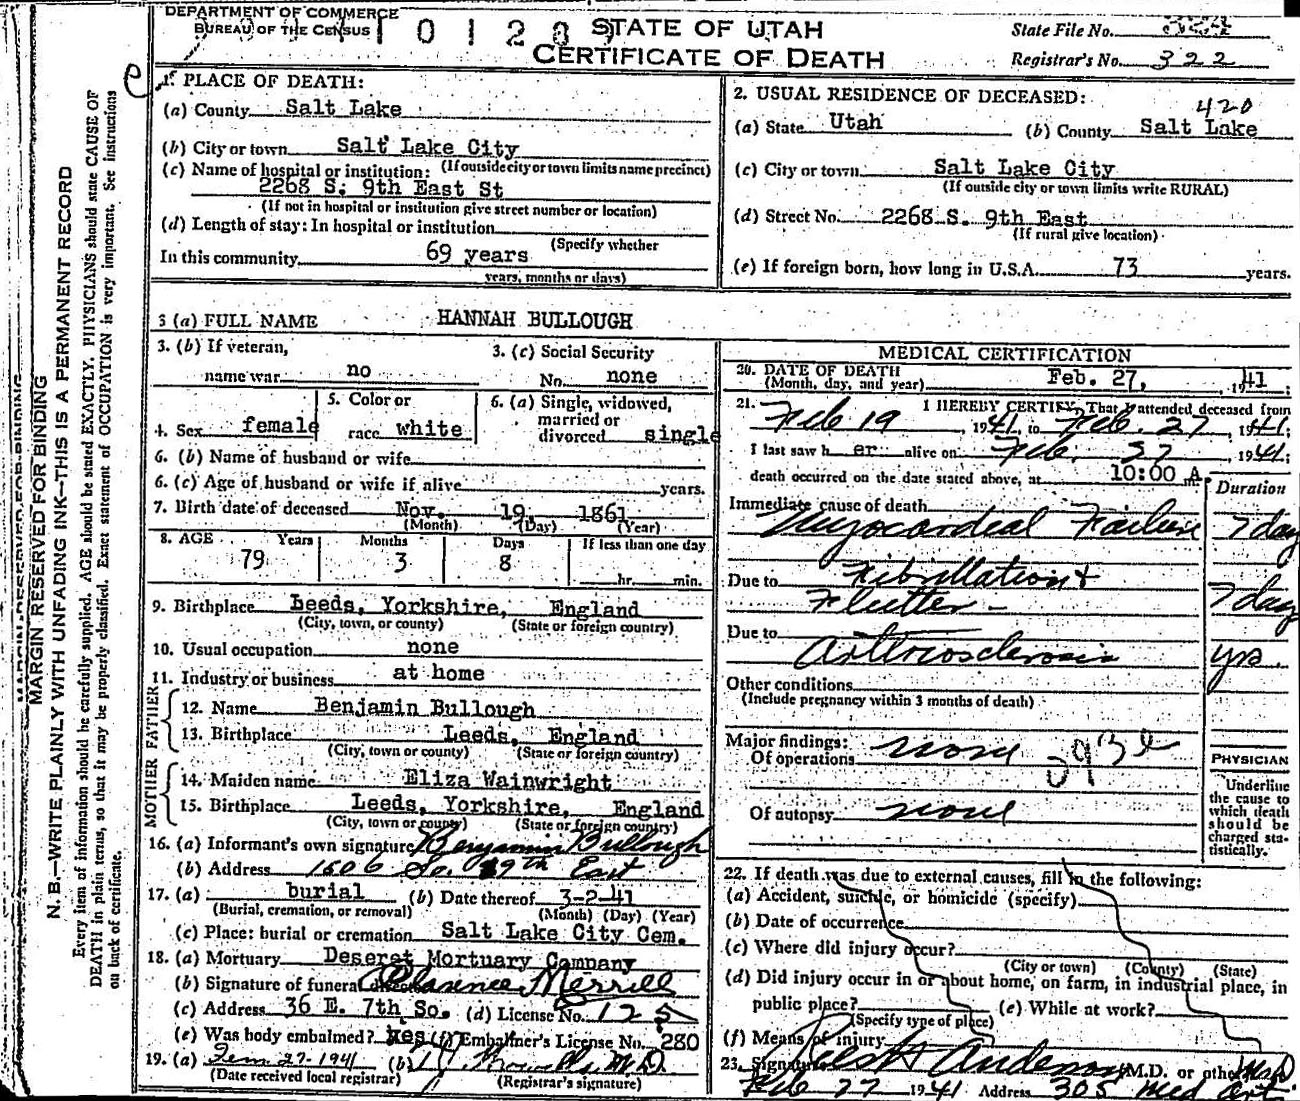 DEPARTMENT OF COMMERCE
BUREAU OF THE CENSUS
STATE OF UTAH
CERTIFICATE OF DEATH
State File No.
Registrar's No. 322
MARGIN RESERVED FOR BINDING
N. B.—WRITE PLAINLY WITH UNFADING INK—THIS IS A PERMANENT RECORD
Every item of information should be carefully supplied. AGE should be stated EXACTLY. PHYSICIANS should state CAUSE OF
DEATH in plain terms, so that it may be properly classified. Exact statement of OCCUPATION is very important. See instructions
on back of certificate.
1. PLACE OF DEATH:
(a) County Salt Lake
(b) City or town Salt Lake City
(c) Name of hospital or institution: (If outside city or town limits name precinct)
2268 S. 9th East St
(If not in hospital or institution give street number or location)
(d) Length of stay: In hospital or institution
(Specify whether
In this community 69 years
years, months or days)
2. USUAL RESIDENCE OF DECEASED:
420
(a) State Utah (b) County Salt Lake
(c) City or town Salt Lake City
(If outside city or town limits write RURAL)
(d) Street No. 2268 S. 9th East
(If rural give location)
(e) If foreign born, how long in U.S.A. 73 years.
3 (a) FULL NAME HANNAH BULLOUGH
3. (b) If veteran,
name war no
3. (c) Social Security
No. none
4. Sex female
5. Color or
race white
6. (a) Single, widowed,
married or
divorced single
6. (b) Name of husband or wife
6. (c) Age of husband or wife if alive years.
7. Birth date of deceased Nov. 19, 1861
(Month) (Day) (Year)
8. AGE Years Months Days If less than one day
79 3 8
hr. min.
9. Birthplace Leeds, Yorkshire, England
(City, town, or county) (State or foreign country)
10. Usual occupation none
11. Industry or business at home
FATHER
12. Name Benjamin Bullough
13. Birthplace Leeds, England
(City, town or county) (State or foreign country)
MOTHER
14. Maiden name Eliza Wainwright
15. Birthplace Leeds, Yorkshire, England
(City, town or county) (State or foreign country)
16. (a) Informant's own signature Benjamin Bullough
(b) Address 1606 So. 9th East
17. (a) burial (b) Date thereof 3-2-41
(Burial, cremation, or removal) (Month) (Day) (Year)
(c) Place: burial or cremation Salt Lake City Cem.
18. (a) Mortuary Deseret Mortuary Company
(b) Signature of funeral director Clarence Merrill
(c) Address 36 E. 7th So. (d) License No. 125
(e) Was body embalmed? yes (f) Embalmer's License No. 280
19. (a) 27-1941 (b) M.D.
(Date received local registrar) (Registrar's signature)
MEDICAL CERTIFICATION
20. DATE OF DEATH
(Month, day, and year) Feb. 27, 1941
21. I HEREBY CERTIFY, That I attended deceased from
Feb 19, 1941, to Feb. 27, 1941;
I last saw h er alive on Feb. 27, 1941;
death occurred on the date stated above, at 10:00 A.
Duration
Immediate cause of death
Myocardial Failure 7 day
Due to Fibrillation &
Flutter - 7 day
Due to
Arteriosclerosis yrs.
Other conditions
(Include pregnancy within 3 months of death)
Major findings:
Of operations none
Of autopsy none
PHYSICIAN
Underline
the cause to
which death
should be
charged sta-
tistically.
22. If death was due to external causes, fill in the following:
(a) Accident, suicide, or homicide (specify)
(b) Date of occurrence
(c) Where did injury occur?
(City or town) (County) (State)
(d) Did injury occur in or about home, on farm, in industrial place, in
public place? (e) While at work?
(Specify type of place)
(f) Means of injury
23. Signature Anderson (M.D. or other) M.D.
Feb 27 1941 Address 305 Med Arts